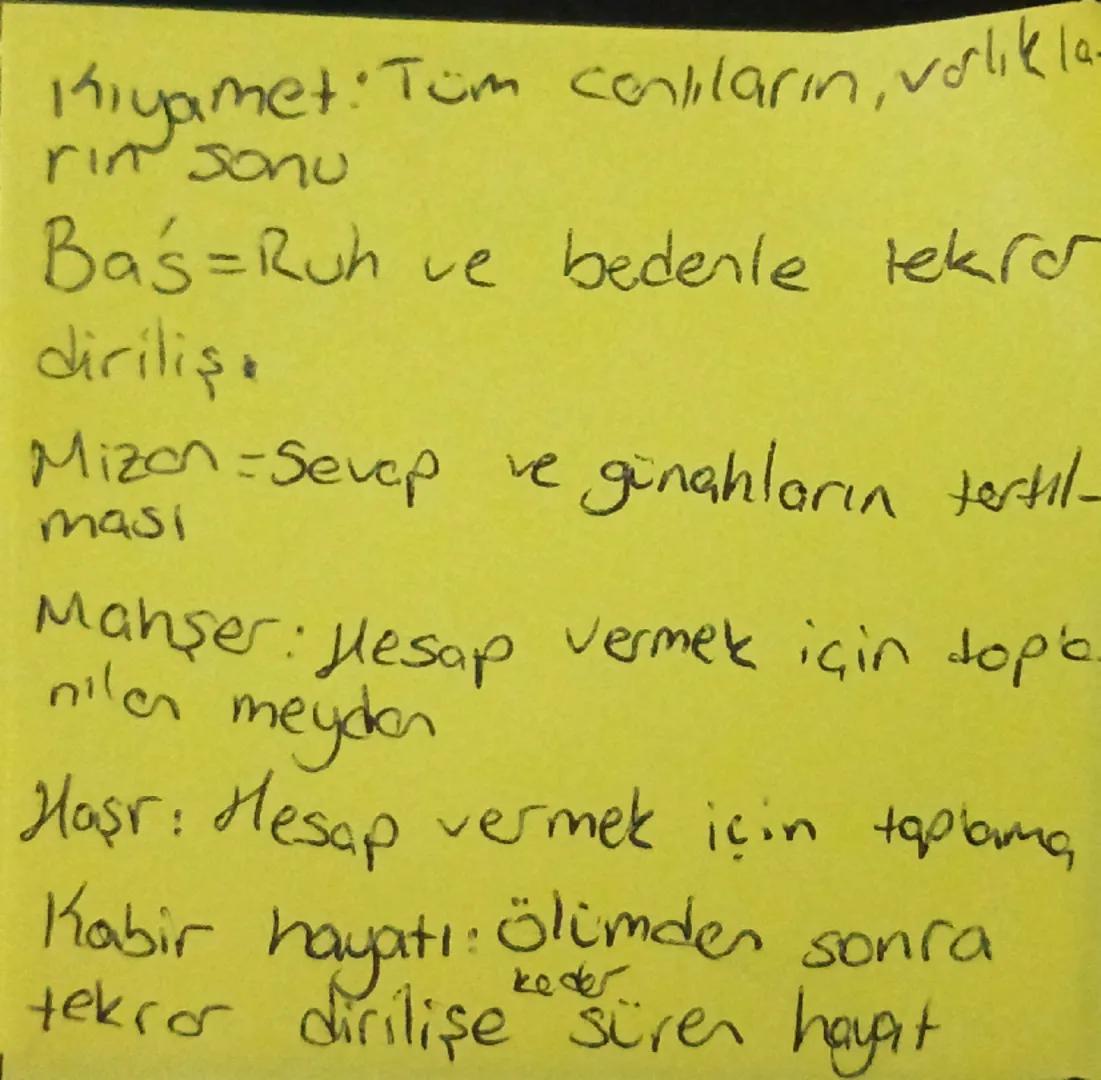 Kıyamet: Tüm canlıların, varlıkla-
rın sonu
Ba's = Ruh ve bedenle tekrar
diriliş.
Mizan = Sevap ve günahların tartıl-
ması
Mahşer: Hesap vermek için topla-
nılan meydan
Haşr: Hesap vermek için toplama
Kabir hayatı: Ölümden sonra
kadar
tekrar dirilişe süren hayat